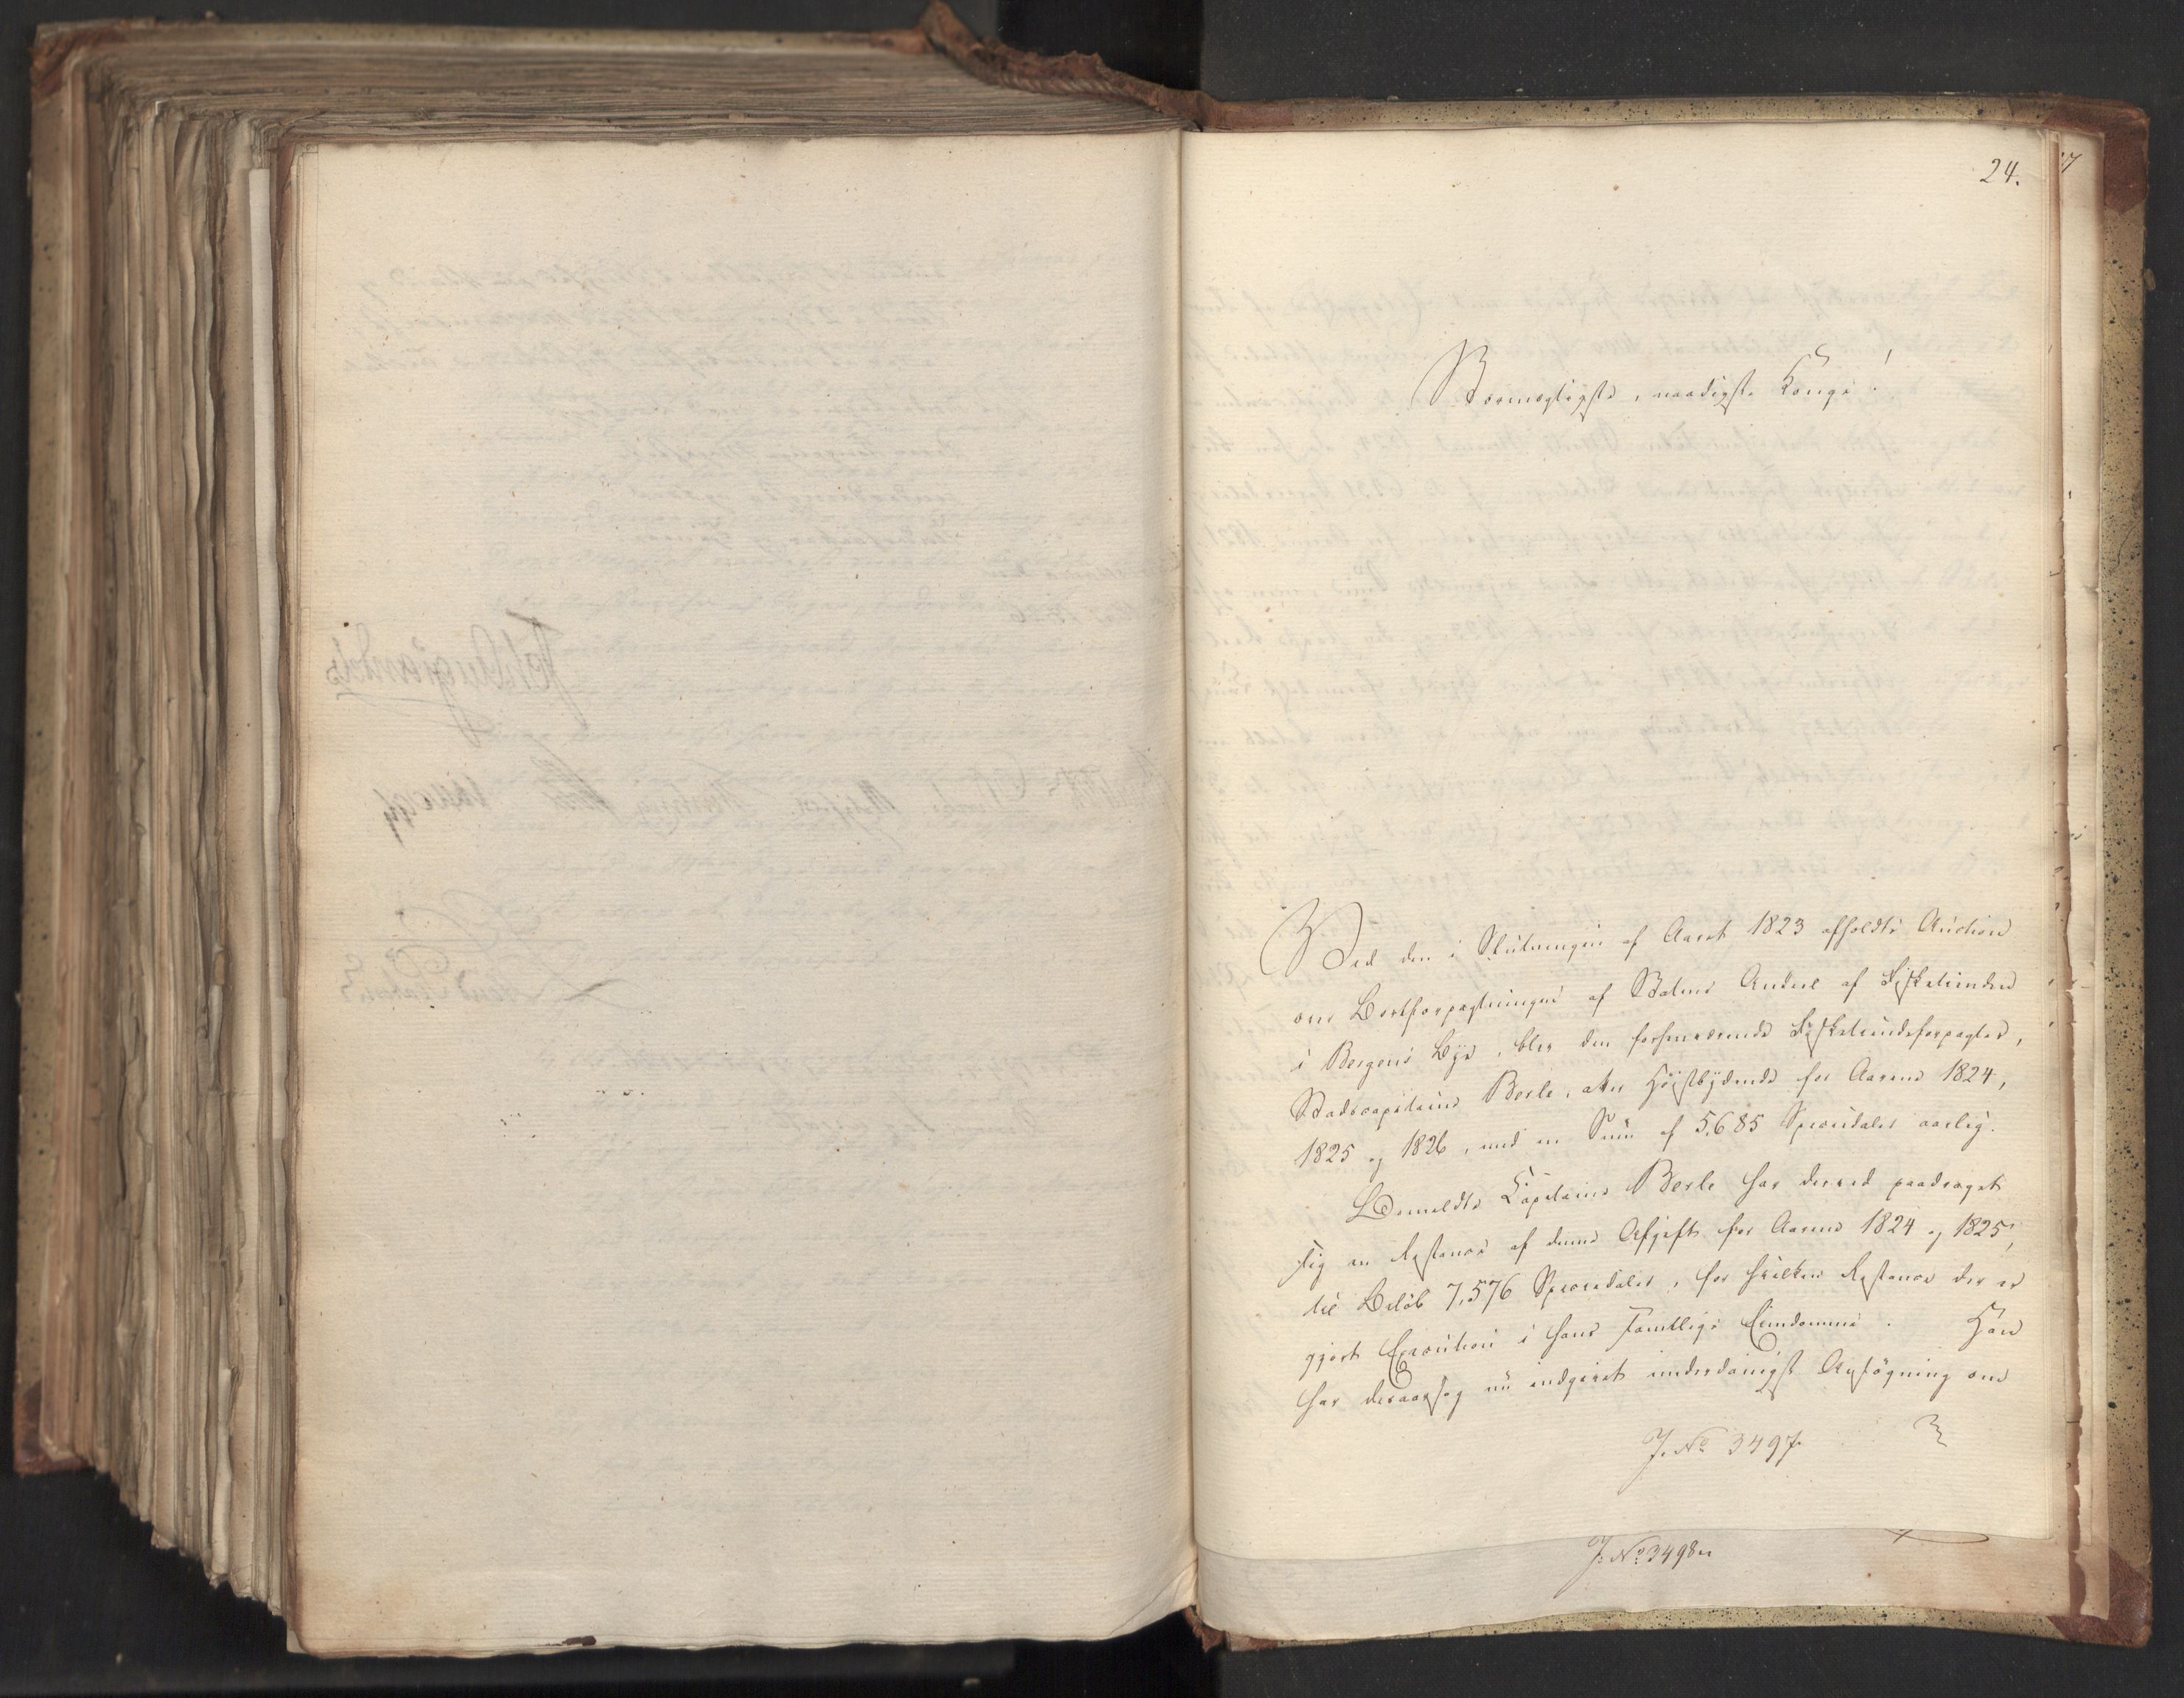 24.
Stormægtigste, naadigste Konge!
Ved den i Slutningen af Aaret 1823 afholdte Auction
over Bortforpagtningen af Statens Andeel af Fisketienden
i Bergens Bye, blev den forhenværende Fisketiendeforpagter,
Stadscapitaine Berle, atter Høistbydende for Aarene 1824,
1825 og 1826, med en Sum af 5,685 Speciedaler aarlig.
Bemeldte Capitaine Berle har derved paadraget
sig en Restance af denne Afgift for Aarene 1824 og 1825,
til Beløb 7,576 Speciedaler, for hvilken Restance der er
gjort Execution i hans samtlige Eiendomme. Han
har deraarsag nu indgivet underdanigst Ansøgning om
J. No 3497.
J: No 3498